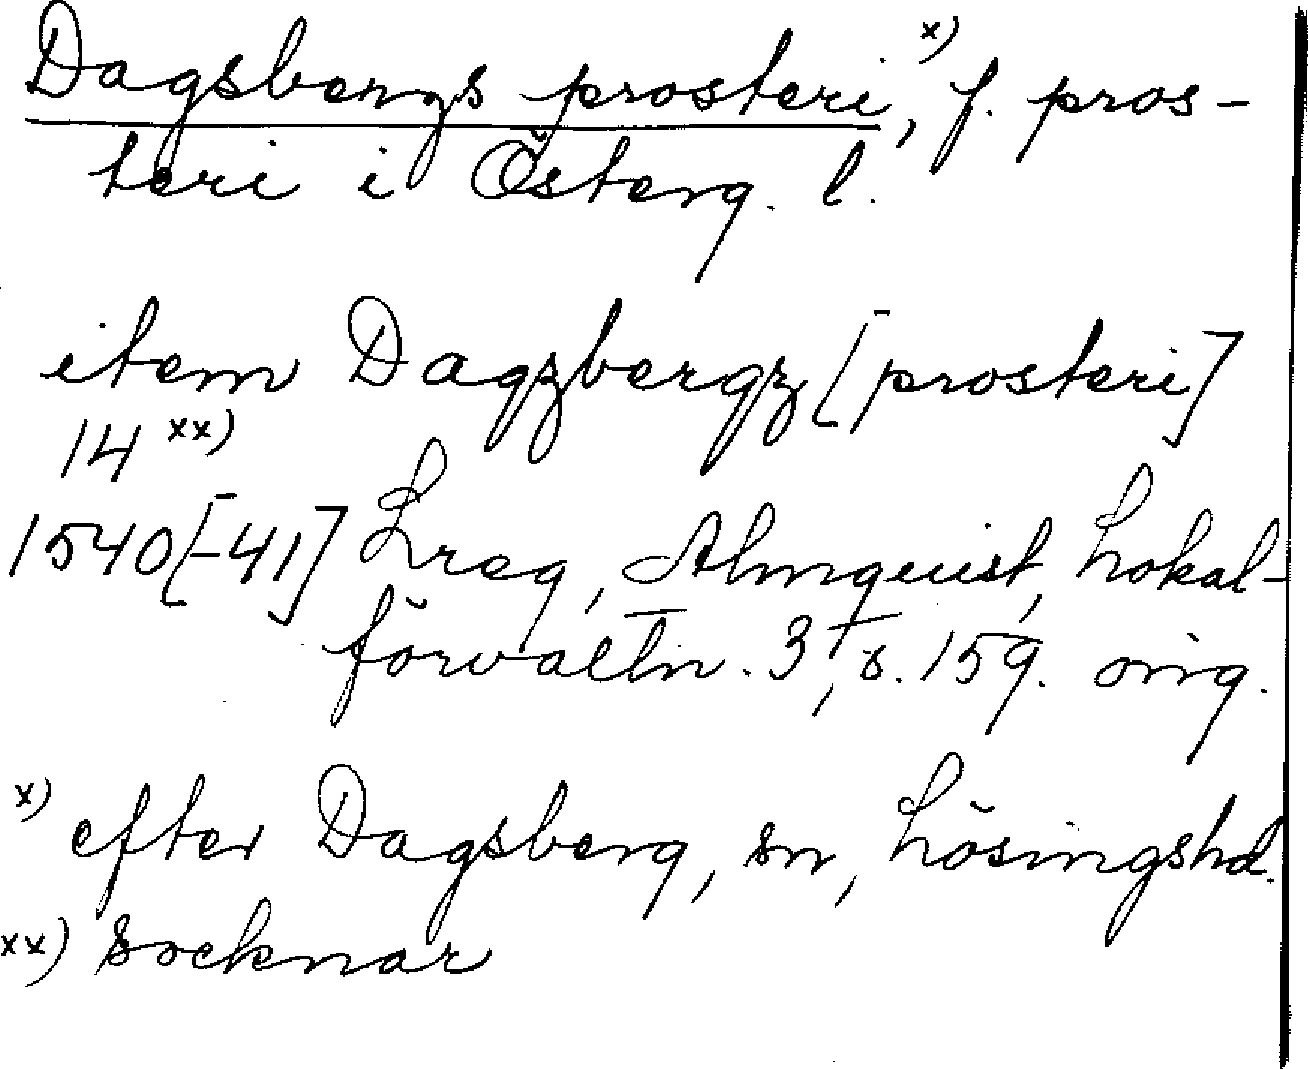 Dagsbergs prosteri,x) f. pros-
teri i Österg. l.
item Dagzbergz [prosteri]
14 xx)
1540[-41] Lreg, Almquist, Lokal-
förvaltn. 3, s. 159. orig.
x) efter Dagsberg, sn, Lösingshd.
xx) socknar